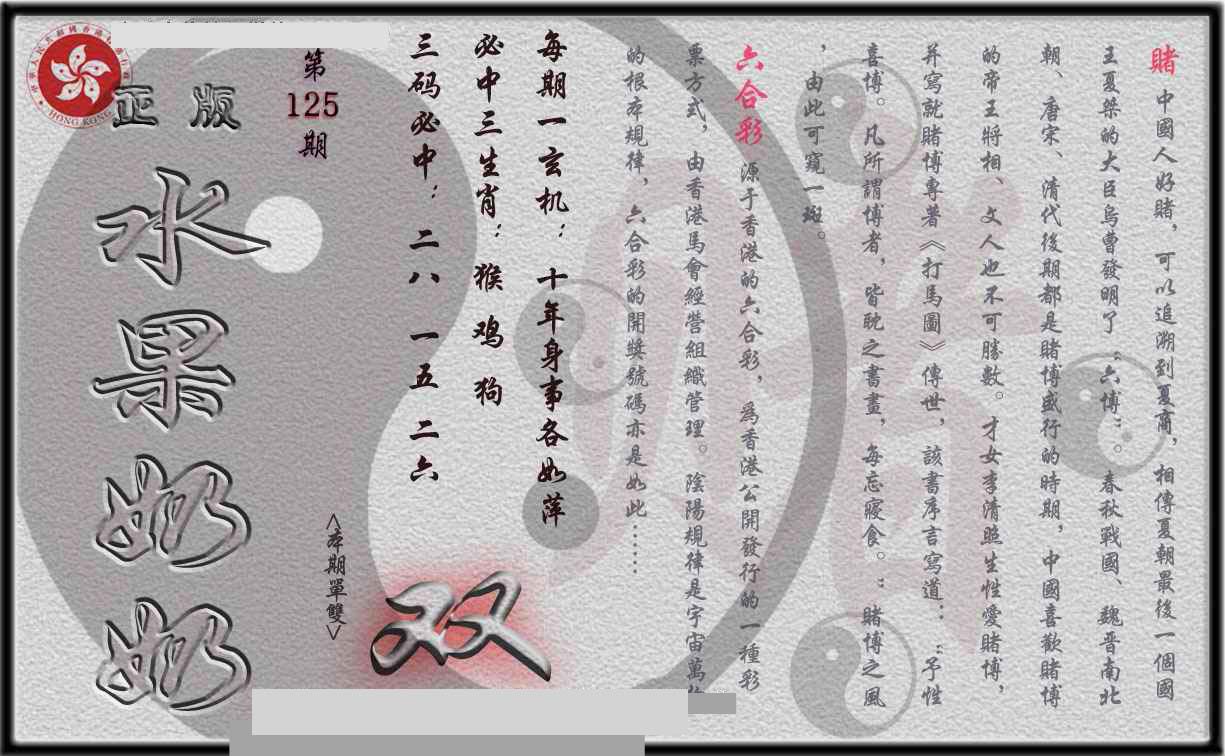 賭 中國人好賭，可以追溯到夏商，相傳夏朝最後一個國
王夏桀的大臣烏曹發明了“六博”。春秋戰國、魏晋南北
朝、唐宋、清代後期都是賭博盛行的時期，中國喜歡賭博
的帝王將相、文人也不可勝數。才女李清照生性愛賭博，
并寫就賭博專著《打馬圖》傳世，該書序言寫道：“予性
喜博。凡所謂博者，皆耽之書畫，每忘寢食。”賭博之風
，由此可窺一斑。
六合彩 源于香港的六合彩，爲香港公開發行的一種彩
票方式，由香港馬會經營組織管理。陰陽規律是宇宙萬
的根本規律，六合彩的開獎號碼亦是如此……
每期一玄机：十年身事各如萍
必中三生肖：猴 鸡 狗
三码必中：二八 一五 二六
第
125
期
<本期單雙>
双
正版
水果奶奶
HONG KONG